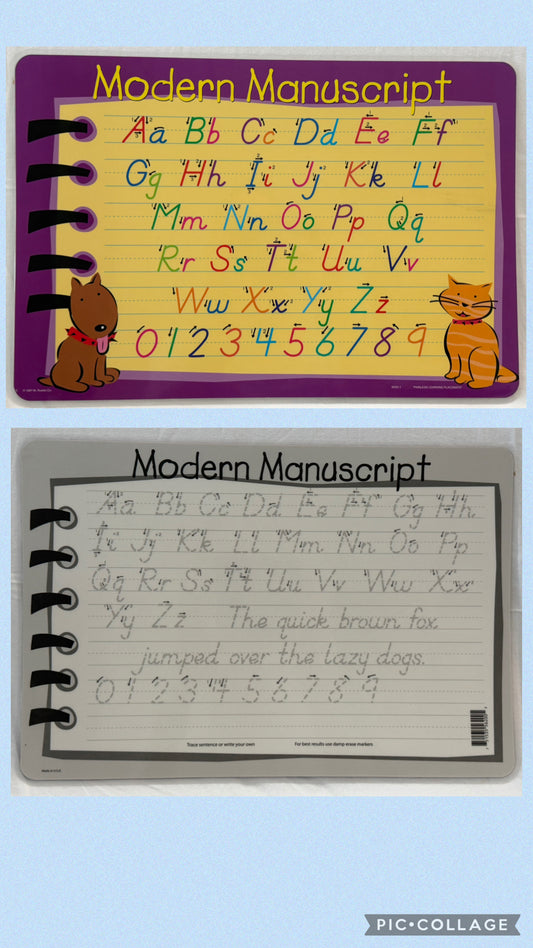 Modern Manuscript
Aa Bb Cc Dd Ee Ff
Gg Hh Ii Jj Kk Ll
Mm Nn Oo Pp Qq
Rr Ss Tt Uu Vv
Ww Xx Yy Zz
0 1 2 3 4 5 6 7 8 9
Modern Manuscript
Aa Bb Cc Dd Ee Ff Gg Hh
Ii Jj Kk Ll Mm Nn Oo Pp
Qq Rr Ss Tt Uu Vv Ww Xx
Yy Zz The quick brown fox
jumped over the lazy dogs.
0 1 2 3 4 5 6 7 8 9
Trace sentence or write your own For best results use damp erase markers
Made in U.S.A.
PIC•COLLAGE